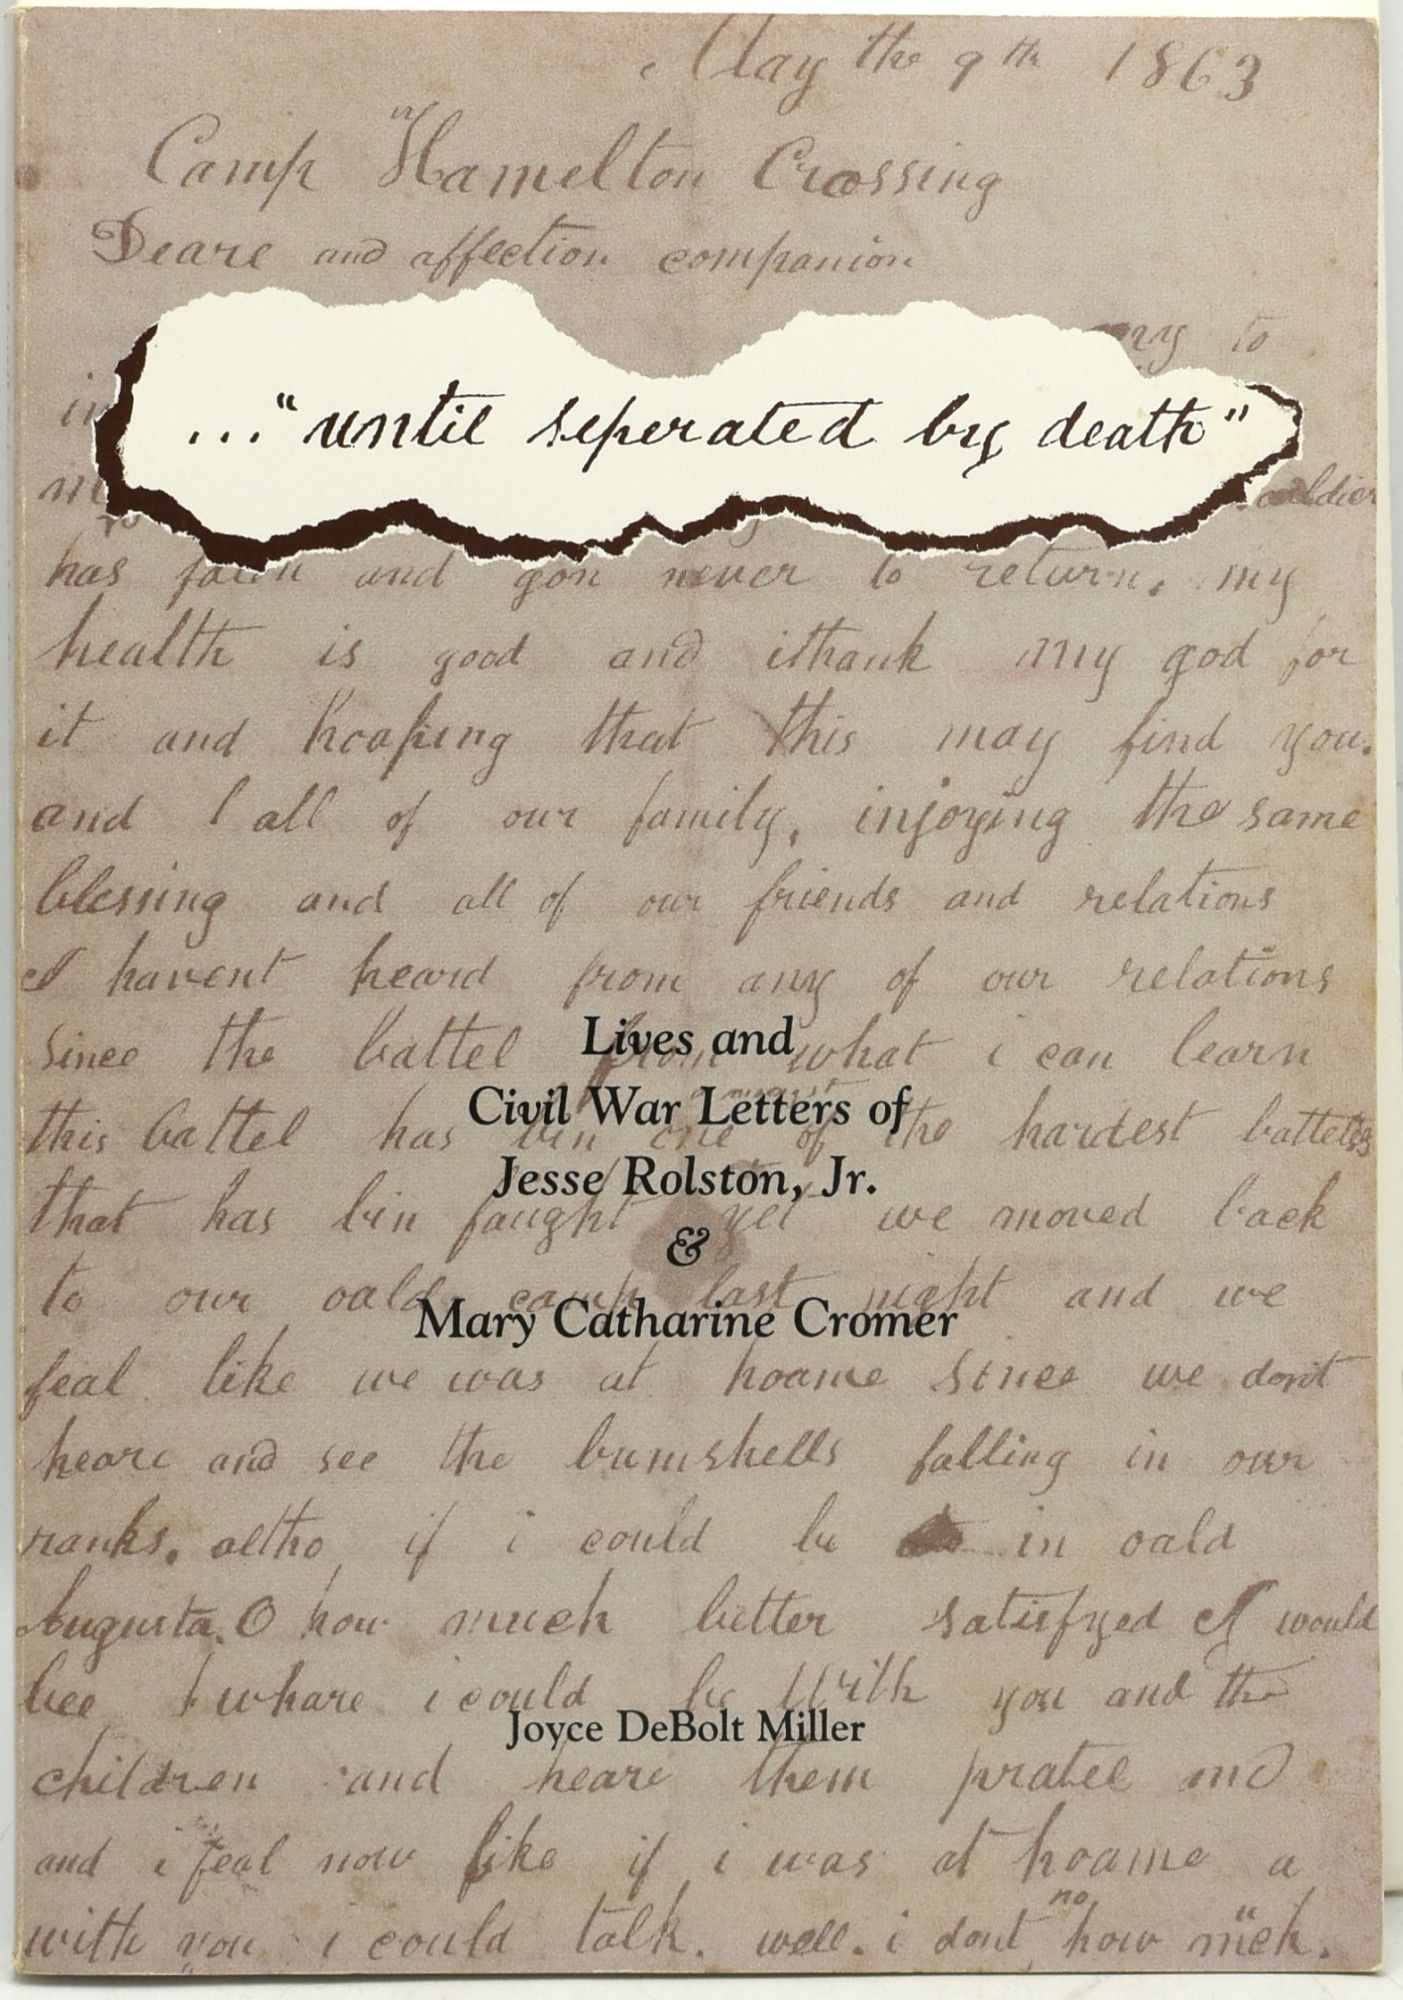 May the 9th 1863
Camp Hamelton Crossing
Deare and affection companion
my to
in
..."until seperated by death"
souldier
has falen and gon never to return. my
health is good and ithank my god for
it and hoaping that this may find you.
and all of our family, injoying the same
blessing and all of our friends and relations
I havent heard from any of our relations
since the battel from what i can learn
Lives and
this battel has bin one of the hardest battels
Civil War Letters of
that has bin faught yet we moved back
Jesse Rolston, Jr.
&
to our oald camp last night and we
Mary Catharine Cromer
feal like we was at hoame since we dont
heare and see the bumshells falling in our
ranks. altho if i could be in oald
Augusta. O how much better satisfyed I would
bee whare i could be with you and the
Joyce DeBolt Miller
children and heare them pratel and
and i feal now like if i was at hoame a
with you i could talk. well. i dont no how much.